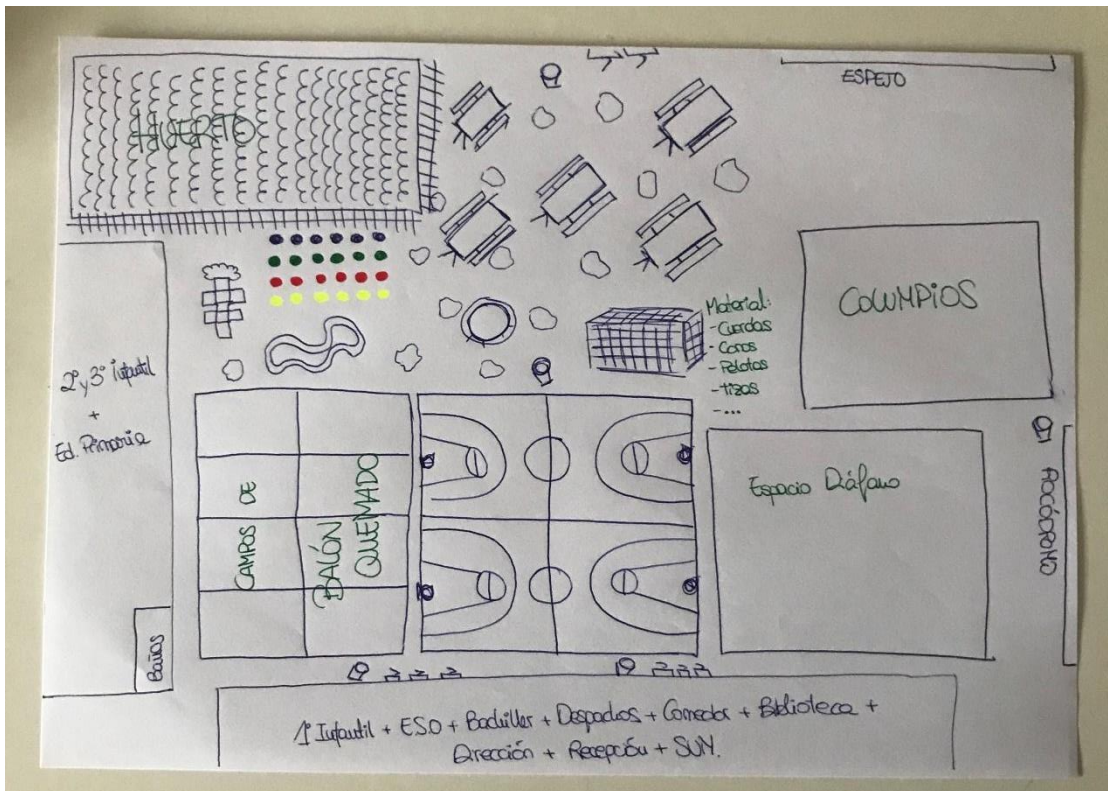 HUERTO
ESPEJO
Material:
- Cuerdas
- Conos
- Pelotas
- Tizas
- ...
COLUMPIOS
2º y 3º Infantil
+
Ed. Primaria
CAMPOS DE
BALÓN
QUEMADO
Espacio Diáfano
ROCÓDROMO
Baños
1º Infantil + E.S.O + Bachiller + Despachos + Comedor + Biblioteca +
Dirección + Recepción + SUM.